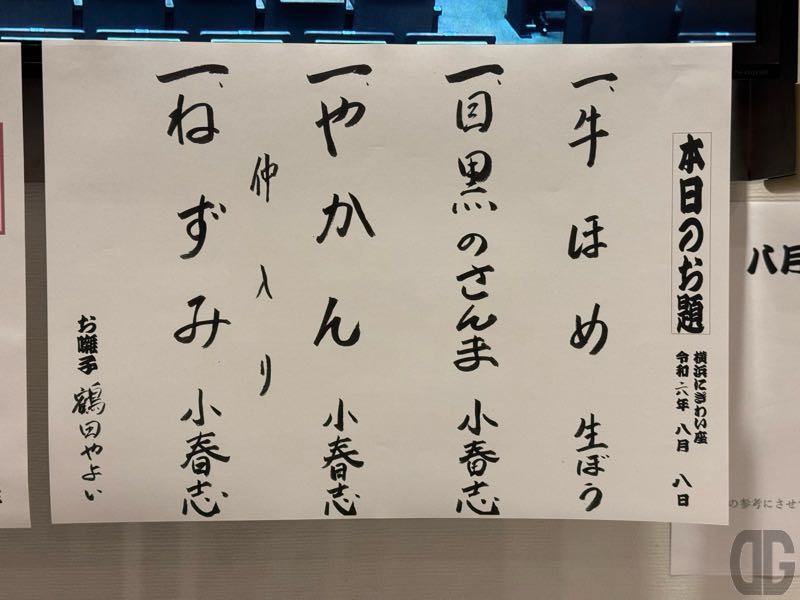 本日のお題
横浜にぎわい座
令和六年 八月 八日
一、牛ほめ 生ぼう
一、目黒のさんま 小春志
一、やかん 小春志
仲入り
一、ねずみ 小春志
お囃子 鶴田やよい
八月
の参考にさせ
DG